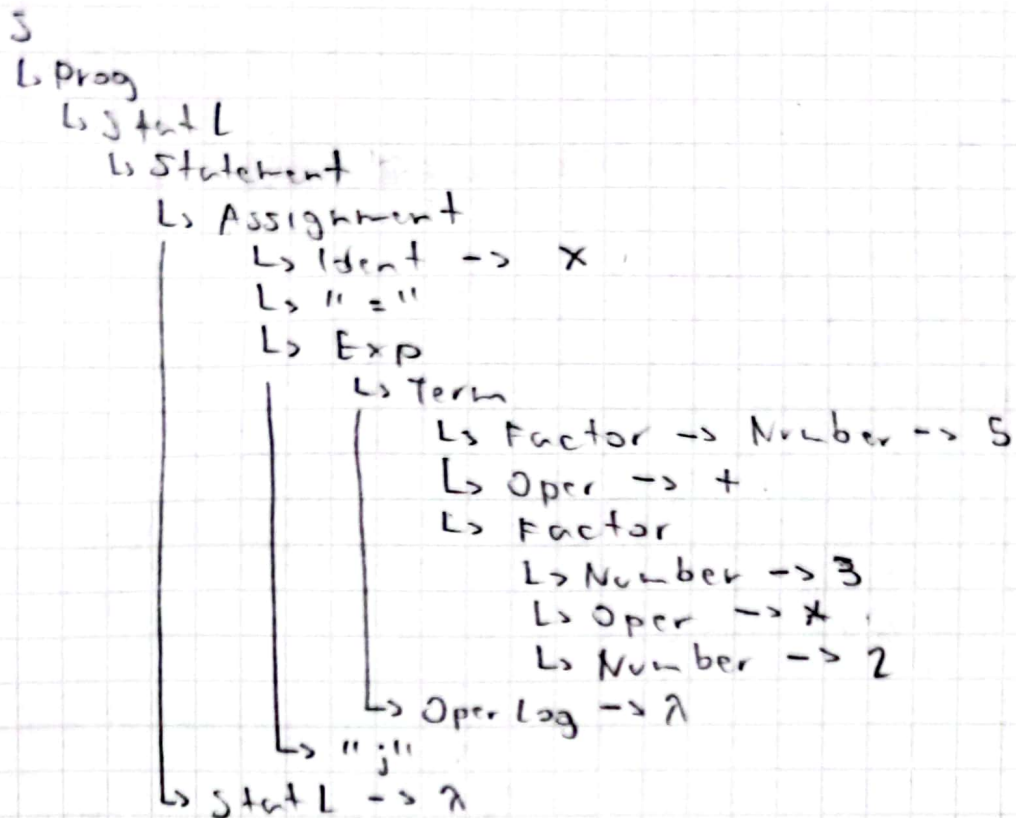 S
↳ Prog
↳ StatL
↳ Statement
↳ Assignment
↳ Ident -> x
↳ "="
↳ Exp
↳ Term
↳ Factor -> Number -> 5
↳ Oper -> +
↳ Factor
↳ Number -> 3
↳ Oper -> *
↳ Number -> 2
↳ OperLog -> λ
↳ ";"
↳ StatL -> λ